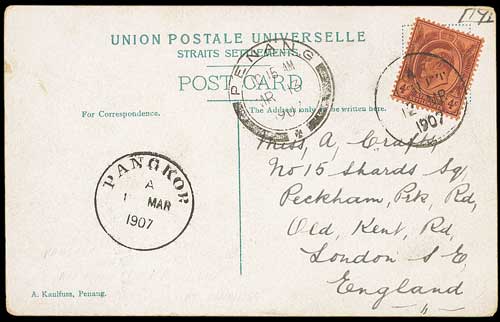 UNION POSTALE UNIVERSELLE
STRAITS SETTLEMENTS.
POST CARD
PENANG
AM
1907
4c 4c
1907
For Correspondence.
The Address only to be written here.
Miss, A, Crafts,
No 15 Shards Sq,
Peckham, Prk, Rd,
Old, Kent, Rd,
London S E,
England
PANGKOR
A
1 MAR
1907
A. Kaulfuss, Penang.